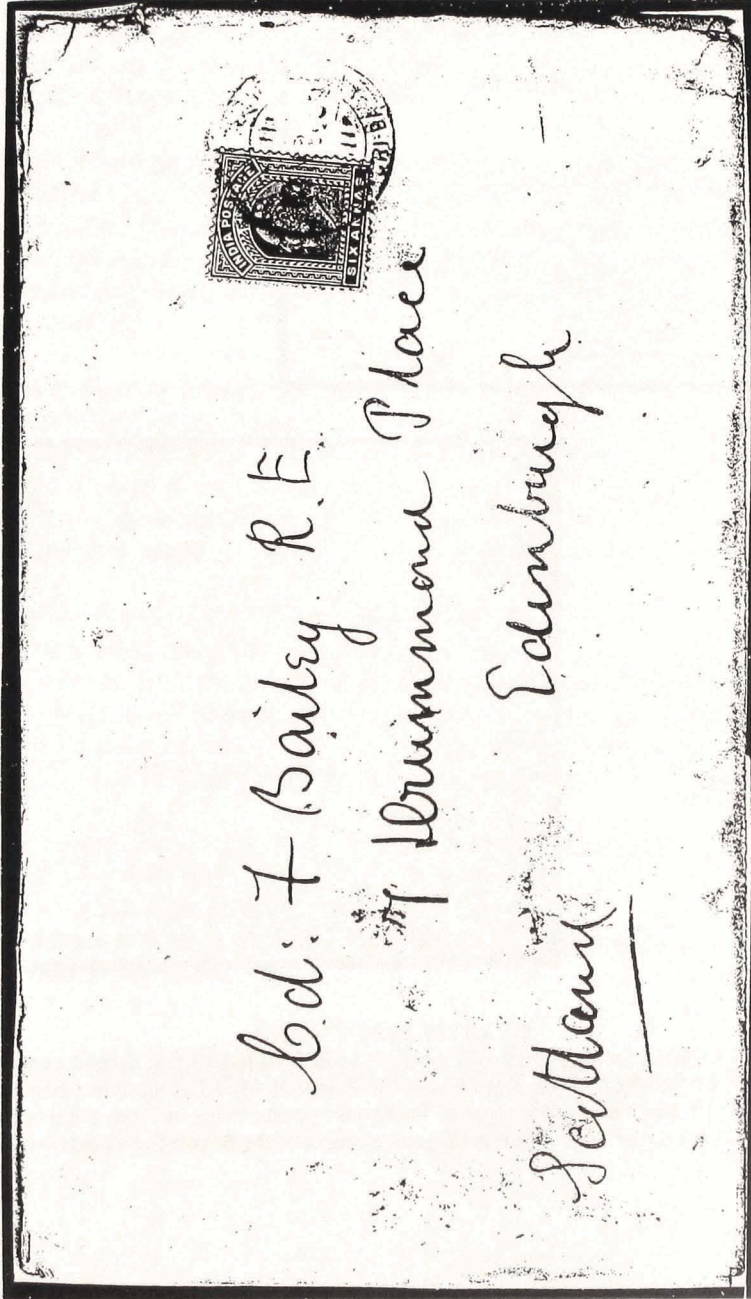 INDIA POSTAGE
SIX ANNAS
Cd: F Bailey. R.E.
7 Drummond Place
Edinburgh
Scotland